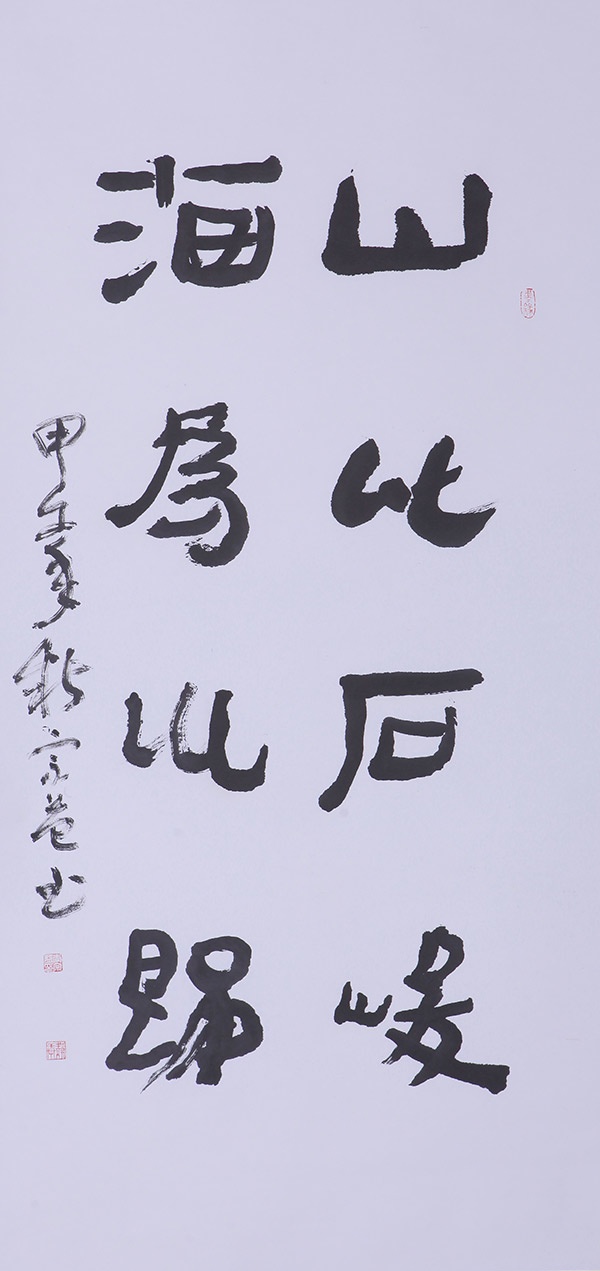 山以石峻
海為川歸
甲午年秋宗书